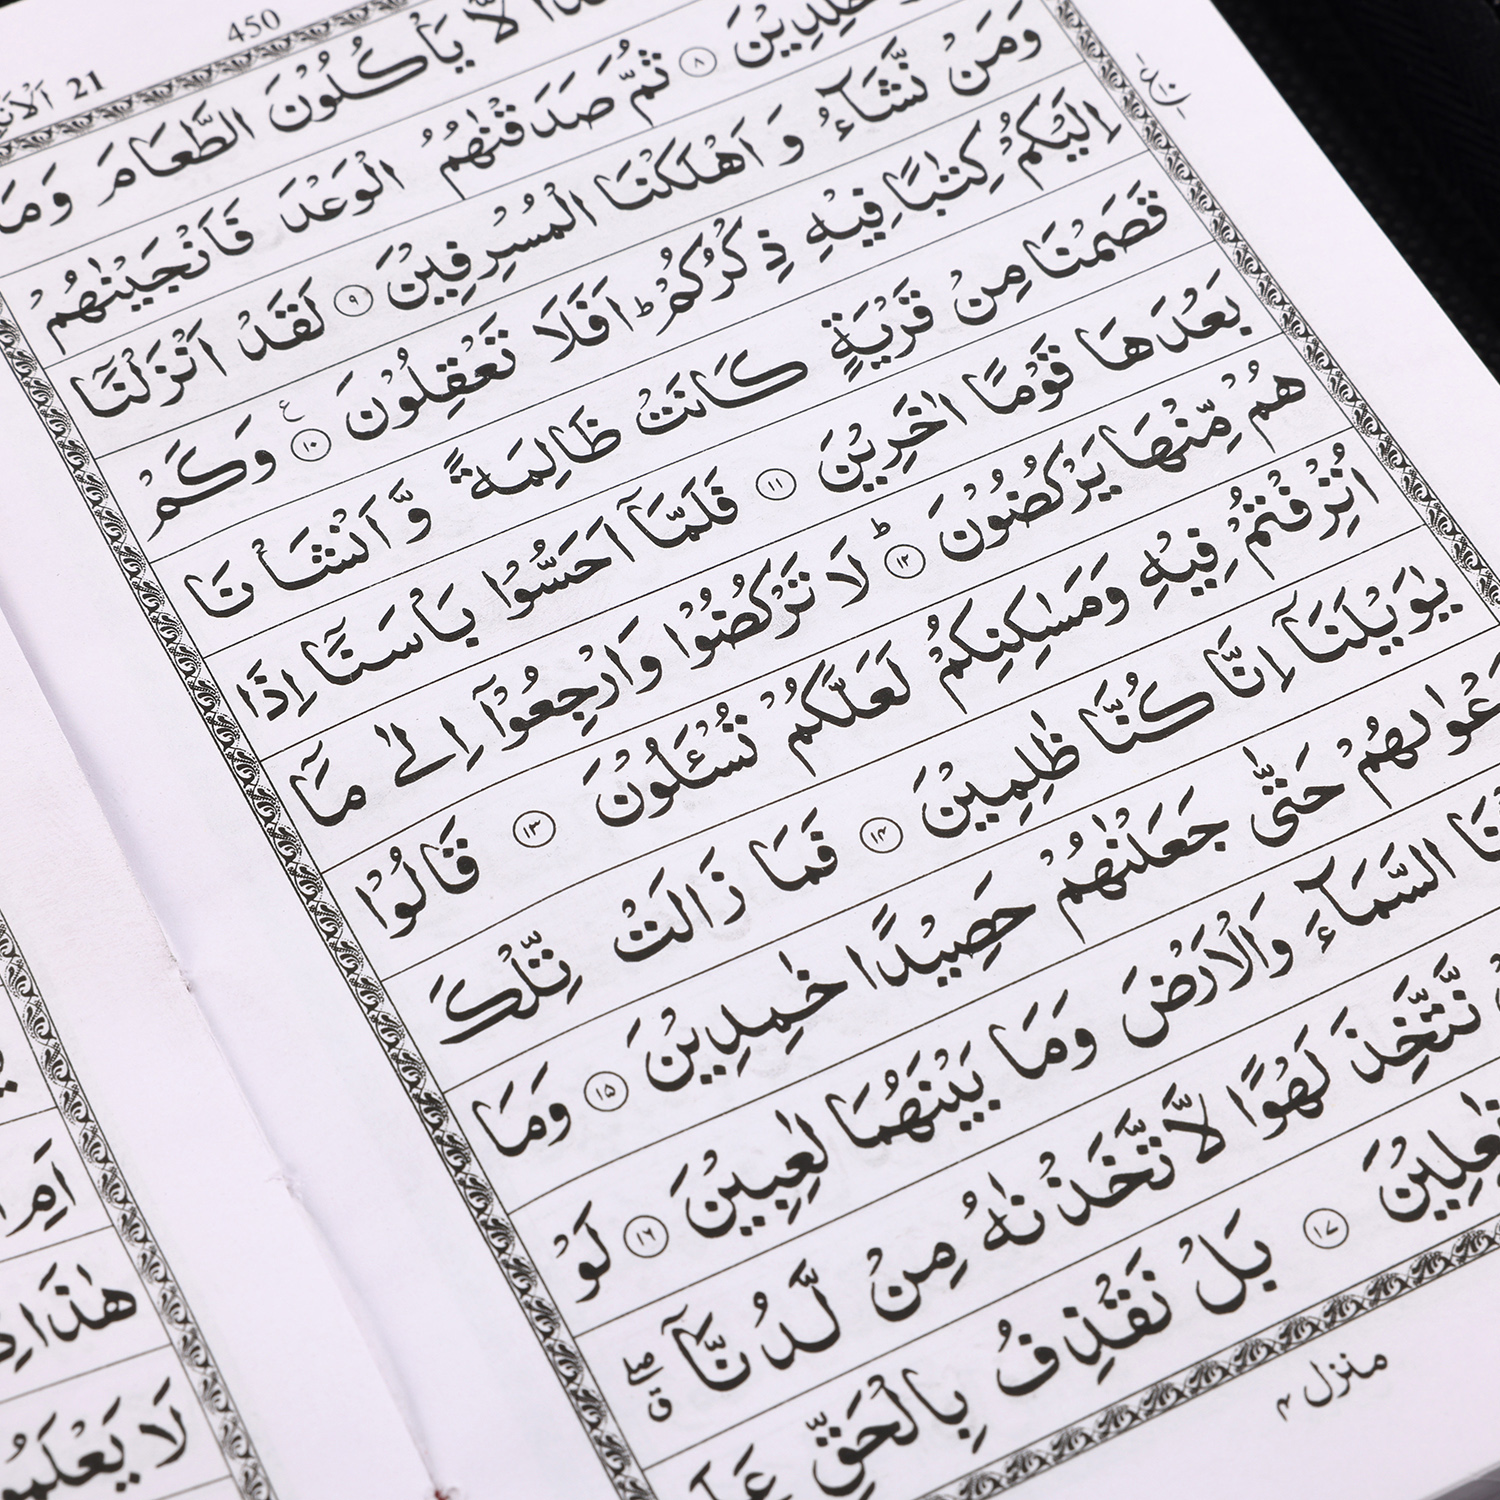 450
21 الاَن
لَّا يَاْكُلُوْنَ الطَّعَامَ وَمَا
خٰلِدِيْنَ ۝٨ ثُمَّ صَدَقْنٰهُمُ الْوَعْدَ فَاَنْجَيْنٰهُمْ
وَمَنْ نَّشَآءُ وَ اَهْلَكْنَا الْمُسْرِفِيْنَ ۝٩ لَقَدْ اَنْزَلْنَآ
اِلَيْكُمْ كِتٰبًا فِيْهِ ذِكْرُكُمْ ؕ اَفَلَا تَعْقِلُوْنَ ۝١٠ ع وَكَمْ
قَصَمْنَا مِنْ قَرْيَةٍ كَانَتْ ظَالِمَةً وَّ اَنْشَاْنَا
بَعْدَهَا قَوْمًا اٰخَرِيْنَ ۝١١ فَلَمَّآ اَحَسُّوْا بَاْسَنَآ اِذَا
هُمْ مِّنْهَا يَرْكُضُوْنَ ؕ۝١٢ لَا تَرْكُضُوْا وَارْجِعُوْٓا اِلٰى مَآ
اُتْرِفْتُمْ فِيْهِ وَمَسٰكِنِكُمْ لَعَلَّكُمْ تُسْـَٔلُوْنَ ۝١٣ قَالُوْا
يٰوَيْلَنَآ اِنَّا كُنَّا ظٰلِمِيْنَ ۝١٤ فَمَا زَالَتْ تِّلْكَ
دَعْوٰىهُمْ حَتّٰى جَعَلْنٰهُمْ حَصِيْدًا خٰمِدِيْنَ ۝١٥ وَمَا
السَّمَآءَ وَالْاَرْضَ وَمَا بَيْنَهُمَا لٰعِبِيْنَ ۝١٦ لَوْ
نَّتَّخِذَ لَهْوًا لَّاتَّخَذْنٰهُ مِنْ لَّدُنَّآ
فٰعِلِيْنَ ۝١٧ بَلْ نَقْذِفُ بِالْحَقِّ عَلَى
منزل ٤
اَمِ
هٰذَا
لَا يَعْلَمُوْ